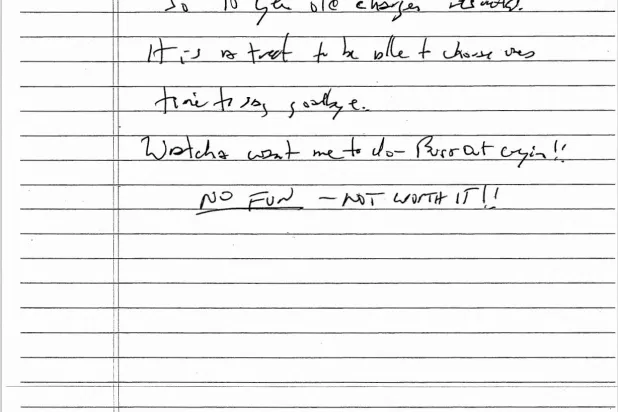 So 10 year old charges
It is a treat to be able to choose ones
time to say goodbye.
Watcha want me to do- Burst out cryin!!
NO FUN - NOT WORTH IT!!